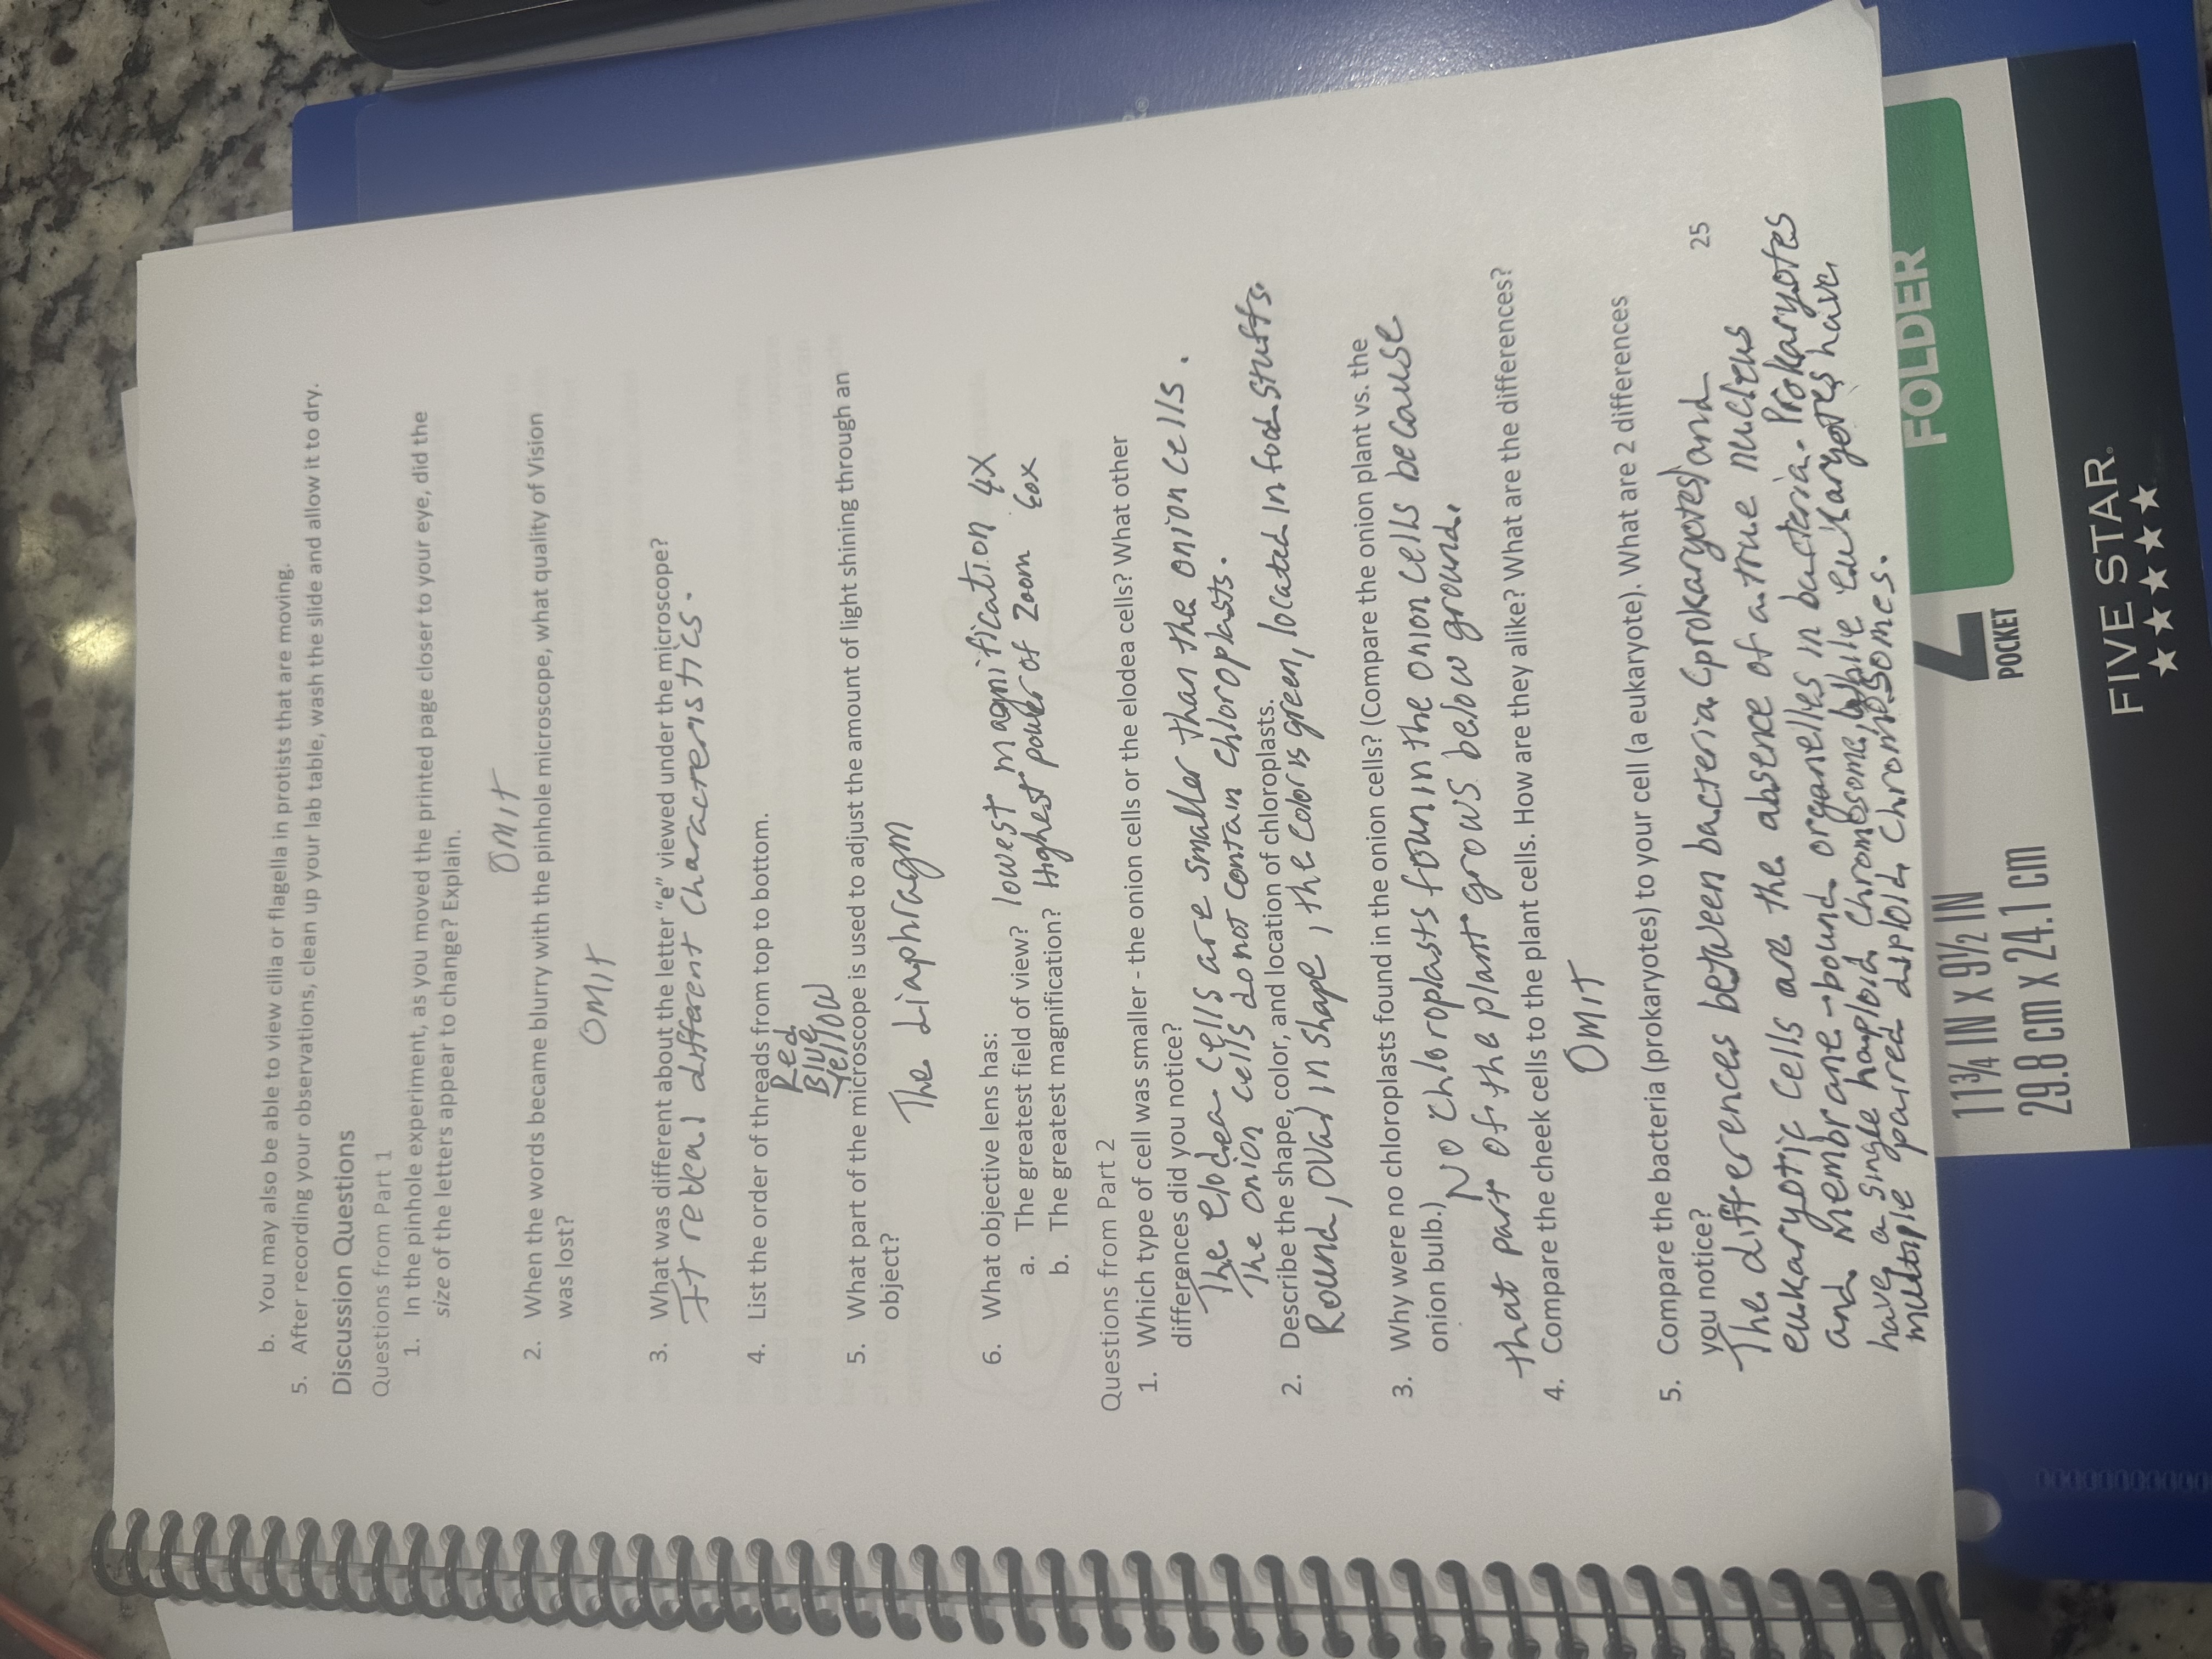 b. You may also be able to view cilia or flagella in protists that are moving.
5. After recording your observations, clean up your lab table, wash the slide and allow it to dry.
Discussion Questions
Questions from Part 1
1. In the pinhole experiment, as you moved the printed page closer to your eye, did the
size of the letters appear to change? Explain.
OMIT
2. When the words became blurry with the pinhole microscope, what quality of Vision
was lost?
OMIT
3. What was different about the letter "e" viewed under the microscope?
It reveal different characteristics.
4. List the order of threads from top to bottom.
Red
Blue
Yellow
5. What part of the microscope is used to adjust the amount of light shining through an
object?
The diaphragm
6. What objective lens has:
a. The greatest field of view? lowest magnification 4X
b. The greatest magnification? Highest power of zoom 60x
Questions from Part 2
1. Which type of cell was smaller - the onion cells or the elodea cells? What other
differences did you notice?
The elodea cells are smaller than the onion cells.
The onion cells do not contain chloroplasts.
2. Describe the shape, color, and location of chloroplasts.
Round, oval in shape, the color is green, located in food stuffs.
3. Why were no chloroplasts found in the onion cells? (Compare the onion plant vs. the
onion bulb.) No chloroplasts foun in the onion cells because
that part of the plant grows below ground.
4. Compare the cheek cells to the plant cells. How are they alike? What are the differences?
OMIT
5. Compare the bacteria (prokaryotes) to your cell (a eukaryote). What are 2 differences
you notice?
25
The differences between bacteria (prokaryotes) and
eukaryotic cells are the absence of a true nucleus
and membrane-bound organelles in bacteria. Prokaryotes
have a single haploid chromosome, while eukaryotes have
multiple paired diploid chromosomes.
11¾ IN x 9½ IN
29.8 cm x 24.1 cm
2
POCKET
FOLDER
FIVE STAR.